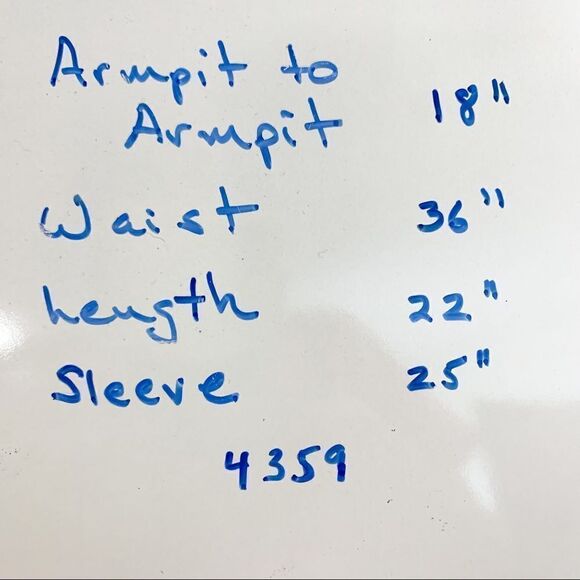 Armpit to
Armpit 18"
Waist 36"
Length 22"
Sleeve 25"
4359